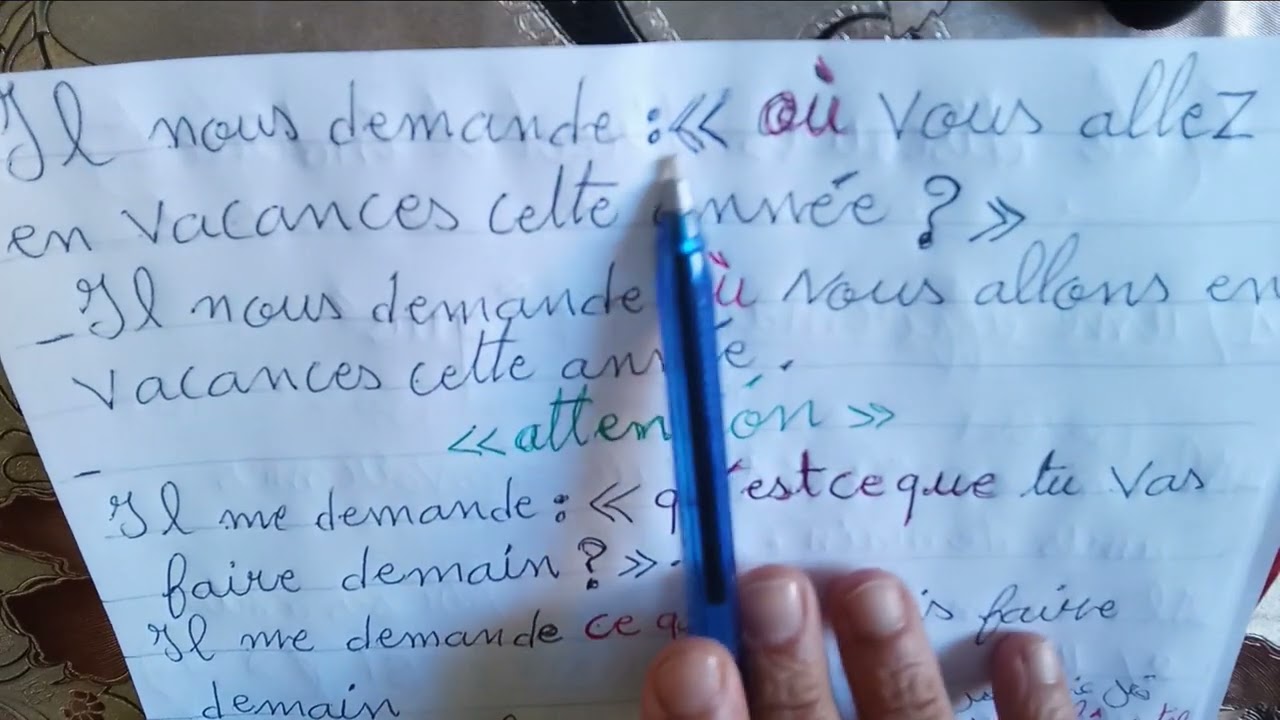 Il nous demande :« où vous allez
en vacances cette année ? »
_ Il nous demande où nous allons en
vacances cette année.
« attention »
_
Il me demande : « qu'est ce que tu vas
faire demain ? ».
Il me demande ce que faire
demain